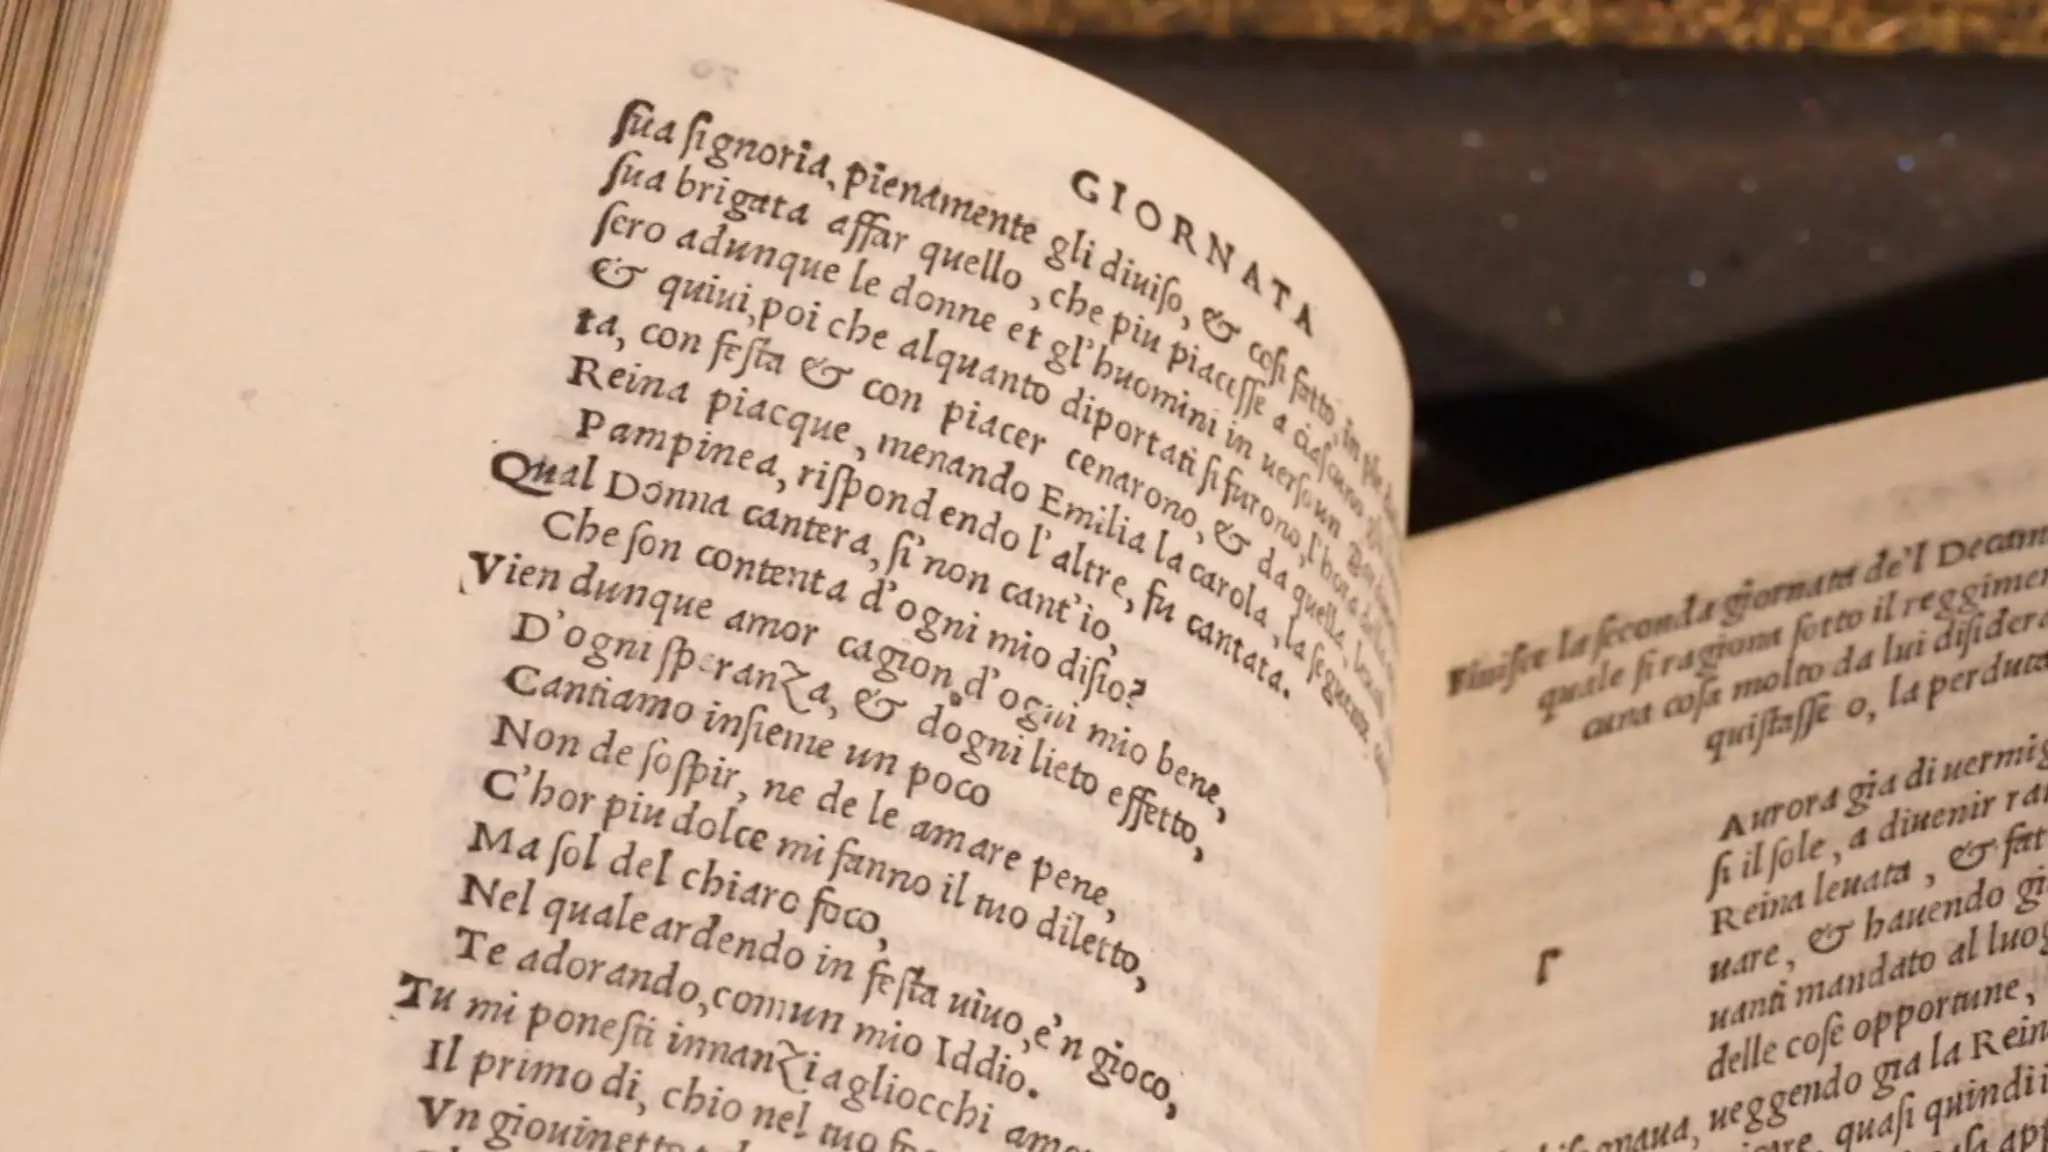 GIORNATA
ſua ſignoria, pienamente gli diuiſo, & coſi fatto, in pie
ſua brigata affar quello, che piu piaceſſe a ciaſcuno
ſero adunque le donne et gl'huomini in uerſo un
& quiui, poi che alquanto diportati ſi furono, l'hora della
ta, con feſta & con piacer cenarono, & da quella,
Reina piacque, menando Emilia la carola, la ſeguente
Pampinea, riſpondendo l'altre, fu cantata.
Qual Donna cantera, ſi'non cant'io,
Che ſon contenta d'ogni mio diſio?
Vien dunque amor cagion d'ogni mio bene,
D'ogni ſperanza, & dogni lieto effetto,
Cantiamo inſieme un poco
Non de ſoſpir, ne de le amare pene,
C'hor piu dolce mi fanno il tuo diletto,
Ma ſol del chiaro foco,
Nel quale ardendo in feſta uiuo, e'n gioco,
Te adorando, comun mio Iddio.
Tu mi poneſti innanzi agliocchi
Il primo di, chio nel tuo
Vn giouinetto
Finiſce la ſeconda giornata de'l Decam
quale ſi ragiona ſotto il reggimen
cuna coſa molto da lui diſidera
quiſtaſſe o, la perduta
Aurora gia di uermig
ſi il ſole, a diuenir ran
Reina leuata, & fat
uare, & hauendo gi
uanti mandato al luog
delle coſe opportune,
ueggendo gia la Rein
quaſi quindi